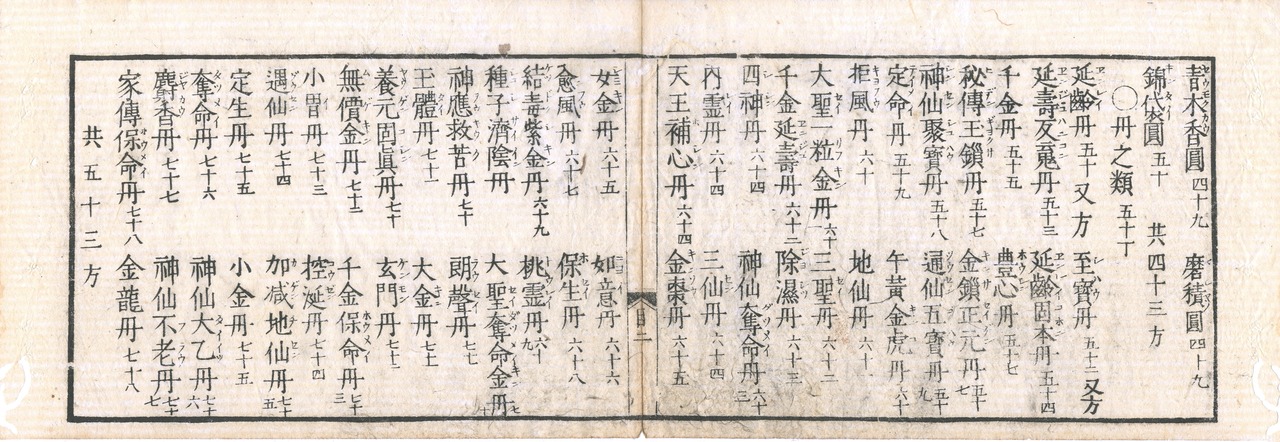 青木香圓 四十九 磨積圓 四十九
錦袋圓 五十 共四十三方
〇丹之類 五十丁
延齡丹 五十 又方 至寶丹 五十二 又方
延壽反魂丹 五十三 延齡固本丹 五十四
千金丹 五十五 豊心丹 五十七
秘傳玉鎖丹 五十七 金鎖正元丹 五十七
神仙聚寶丹 五十八 通仙五寶丹 五十九
定命丹 五十九 午黃金虎丹 六十
拒風丹 六十 地仙丹 六十一
大聖一粒金丹 六十 三聖丹 六十二
千金延壽丹 六十二 除濕丹 六十三
四神丹 六十四 神仙奪命丹 六十三
內灵丹 六十四 三仙丹 六十四
天王補心丹 六十四 金棗丹 六十五
目二
女金丹 六十五 如意丹 六十六
愈風丹 六十七 保生丹 六十八
結毒紫金丹 六十九 桃灵丹 六十九
種子濟陰丹 大聖奪命金丹
神應救苦丹 七十 朗聲丹 七七
玉體丹 七十一 大金丹 七七
養元固眞丹 七十 玄門丹 七十二
無價金丹 七十二 千金保命丹 七十三
小胃丹 七十三 控涎丹 七十四
遇仙丹 七十四 加减地仙丹 七十五
定生丹 七十五 小金丹 七十五
奪命丹 七十六 神仙大乙丹 七十六
麝香丹 七十七 神仙不老丹 七十七
家傳保命丹 七十八 金龍丹 七十八
共五十三方